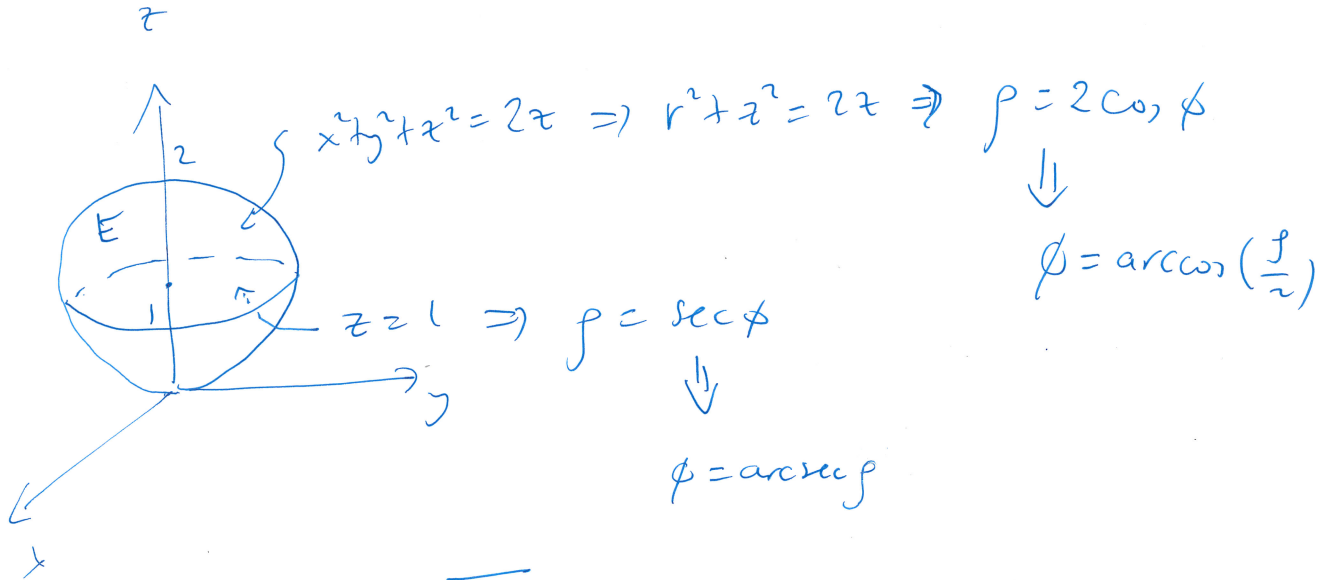 z
x²+y²+z² = 2z ⇒ r²+z² = 2z ⇒ ρ = 2cos φ
2
⇓
E
φ = arccos(ρ/2)
1
z = 1 ⇒ ρ = sec φ
y
⇓
φ = arcsec ρ
x